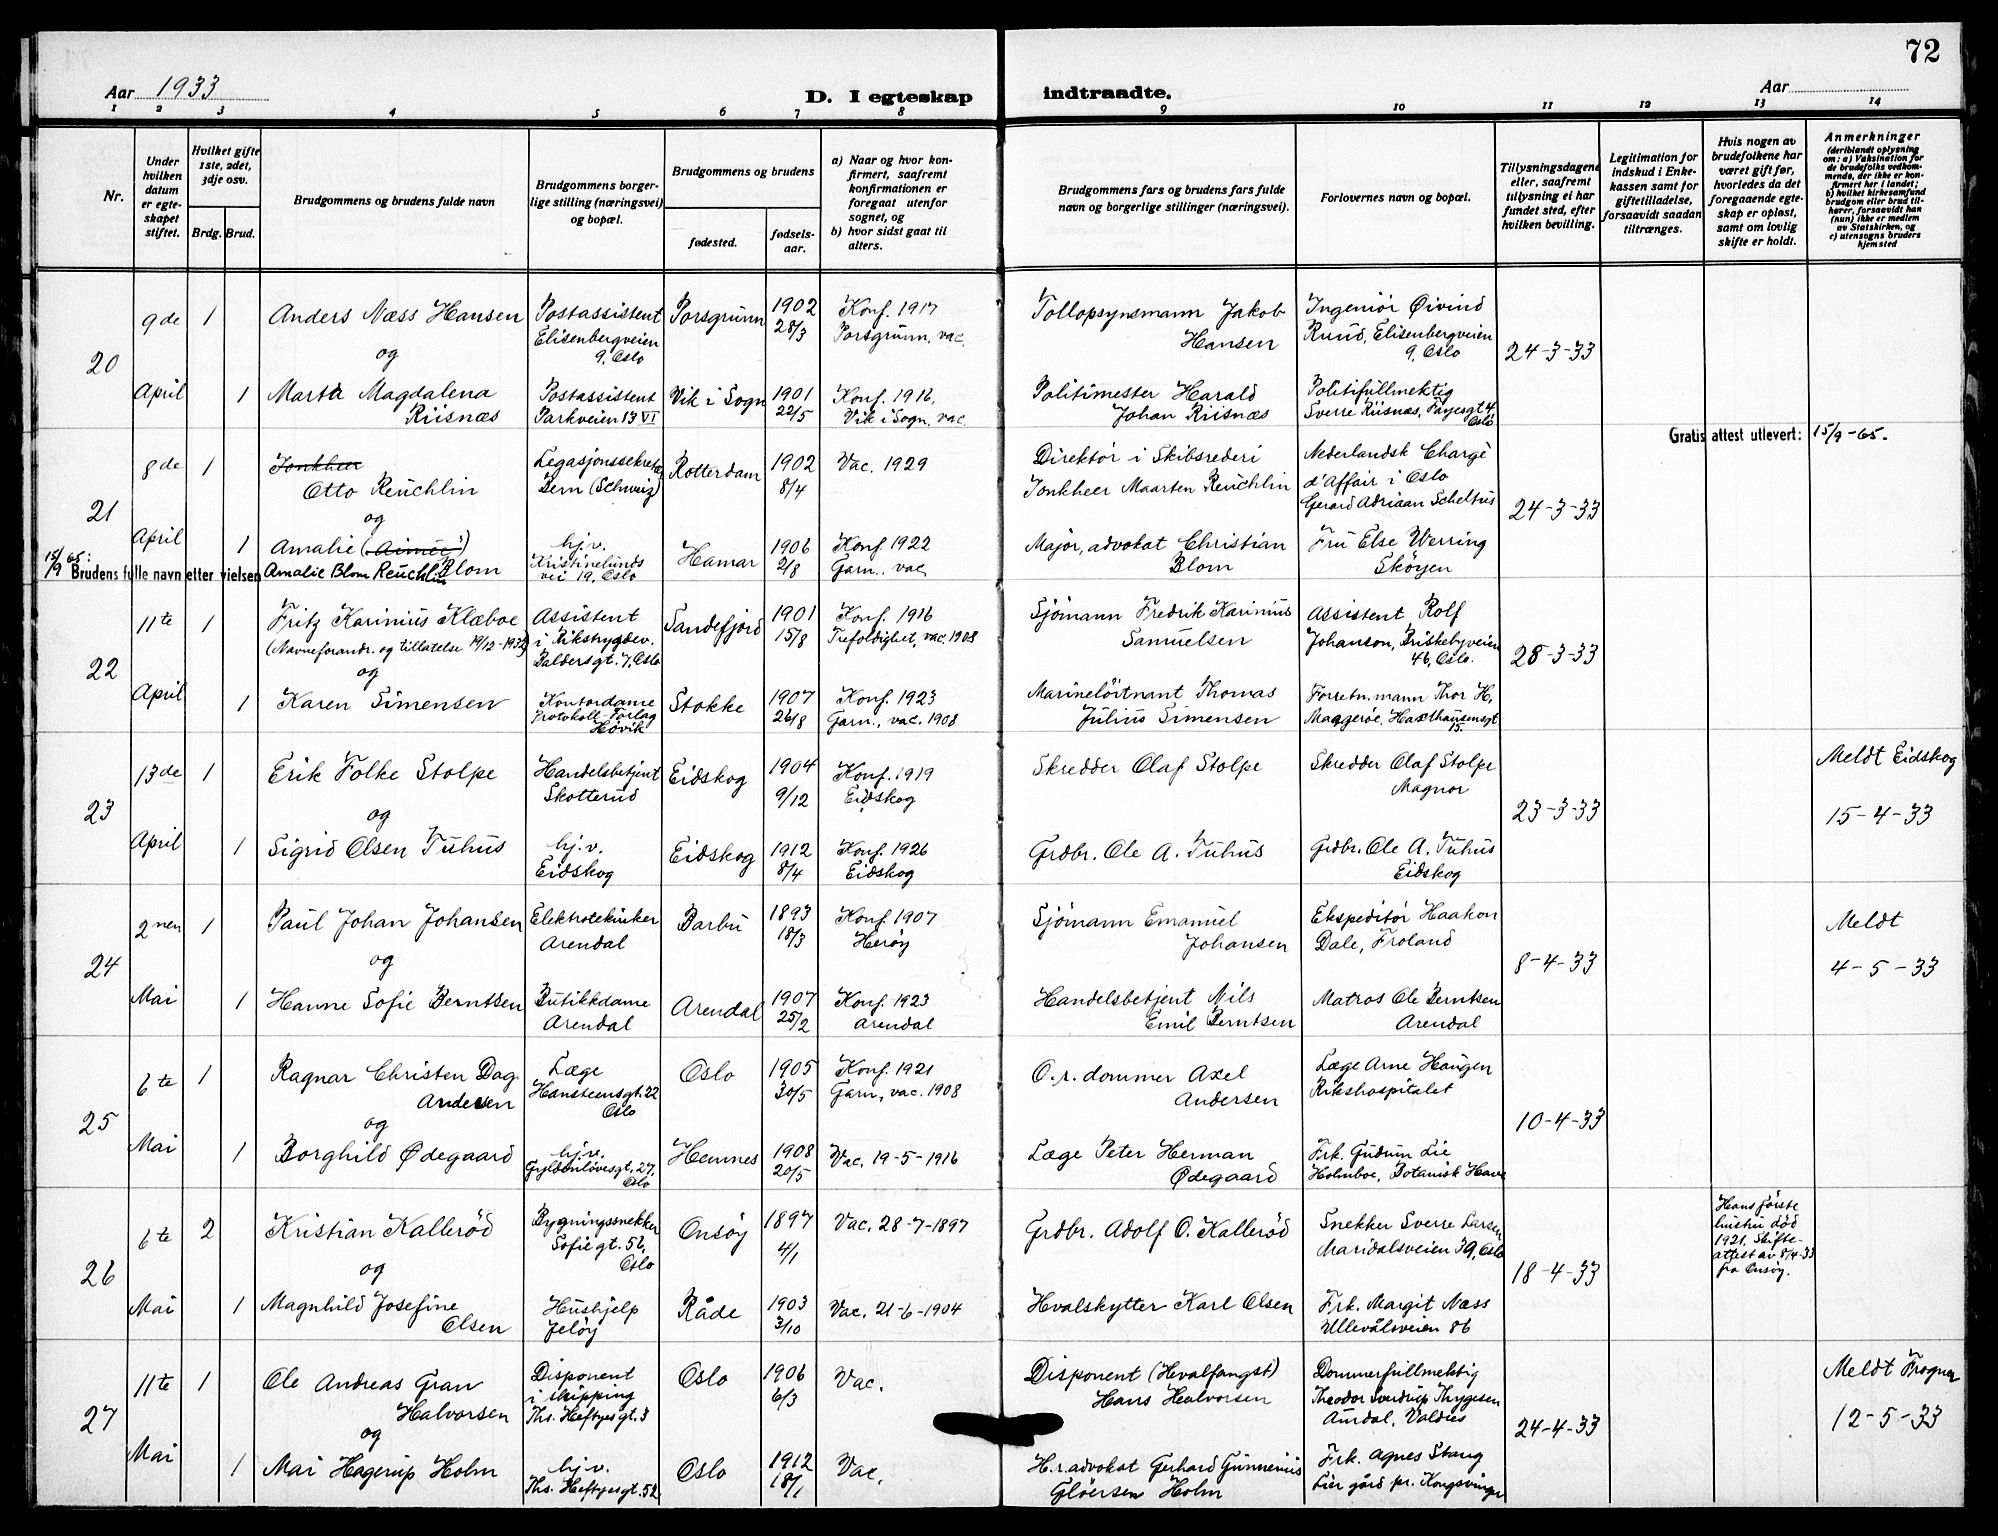 72
Aar 1933
D. I egteskap indtraadte.
Aar
1 2 3 4 5 6 7 8 9 10 11 12 13 14
Nr.
Under hvilken datum er egteskapet stiftet.
Hvilket gifte 1ste, 2det, 3dje osv.
Brdg. Brud.
Brudgommens og brudens fulde navn
Brudgommens borgerlige stilling (næringsvei) og bopæl.
Brudgommens og brudens
fødested.
fødselsaar.
a) Naar og hvor konfirmert, saafremt konfirmationen er foregaat utenfor sognet, og
b) hvor sidst gaat til alters.
Brudgommens fars og brudens fars fulde navn og borgerlige stillinger (næringsvei).
Forlovernes navn og bopæl.
Tillysningsdagene eller, saafremt tillysning ei har fundet sted, efter hvilken bevilling.
Legitimation for indskud i Enkekassen samt for giftetilladelse, forsaavidt saadan tiltrænges.
Hvis nogen av brudefolkene har været gift før, hvorledes da det foregaaende egteskap er opløst, samt om lovlig skifte er holdt.
Anmerkninger
(deriblandt oplysning om: a) Vaksination for de brudefolks vedkommende, der ikke er konfirmert her i landet; b) hvilket kirkesamfund brudgom eller brud tilhører, forsaavidt han (hun) ikke er medlem av Statskirken, og c) utensogns bruders hjemsted
20
9de April
1
Anders Næss Hansen
Postassistent
Elisenbergveien
9, Oslo
Porsgrunn
1902
28/3
Konf. 1917
Porsgrunn, vac.
Tollopsynsmann Jakob
Hansen
Ingeniør Øivind
Ruud, Elisenbergveien
9, Oslo
24-3-33
og
1
Marta Magdalena
Riisnæs
Postassistent
Parkveien 13 VI
Vik i Sogn
1901
22/5
Konf. 1916,
Vik i Sogn, vac.
Politimester Harald
Johan Riisnæs
Politifullmektig
Sverre Riisnæs, Fayesgt 4
Oslo
Gratis attest utlevert: 15/9-65.
21
8de April
1
Jonkheer
Otto Reuchlin
Legasjonssekretær
Bern (Schweiz)
Rotterdam
1902
8/4
Vac. 1929
Direktør i Skibsrederi
Jonkheer Maarten Reuchlin
Nederlandsk Chargè
d'Affair i Oslo
Gerard Adriaan Scheltus
24-3-33
og
1
Amalie (Aimée)
Blom
hj.v.
Kristinelunds
vei 19, Oslo
Hamar
1906
2/8
Konf. 1922
Garn., vac.
Major, advokat Christian
Blom
Fru Else Werring
Skøyen
15/9 65: Brudens fulle navn etter vielsen Amalie Blom Reuchlin
22
11te April
1
Fritz Karinius Klæboe
(Navneforandr. og tillatelse 19/12-1932)
Assistent
i Rikstrygdev.
Baldersgt. 7, Oslo
Sandefjord
1901
15/8
Konf. 1916
Trefoldighet, vac. 1908
Sjømann Fredrik Karinius
Samuelsen
Assistent Rolf
Johanson, Briskebyveien
46, Oslo.
28-3-33
og
1
Karen Simensen
Kontordame
Protokoll-Forlag
Høvik
Stokke
1907
26/8
Konf. 1923
Garn., vac. 1908
Marineløitnant Thomas
Julius Simensen
Forretn.mann Thor H.
Maggerøe, Haxthausensgt
15.
23
13de April
1
Erik Folke Stolpe
Handelsbetjent
Skotterud
Eidskog
1904
9/12
Konf. 1919
Eidskog
Skredder Olaf Stolpe
Skredder Olaf Stolpe
Magnor
23-3-33
Meldt Eidskog
15-4-33
og
1
Sigrid Olsen Tuhus
hj.v.
Eidskog
Eidskog
1912
8/4
Konf. 1926
Eidskog
Grdbr. Ole A. Tuhus
Grdbr. Ole A. Tuhus
Eidskog
24
2nen Mai
1
Paul Johan Johansen
Elektrotekniker
Arendal
Barbu
1893
18/3
Konf. 1907
Herøy
Sjømann Emanuel
Johansen
Ekspeditør Haakon
Dale, Froland
8-4-33
Meldt
4-5-33
og
1
Hanne Sofie Berntsen
Butikkdame
Arendal
Arendal
1907
25/2
Konf. 1923
Arendal
Handelsbetjent Nils
Emil Berntsen
Matros Ole Berntsen
Arendal
25
6te Mai
1
Ragnar Christen Dag
Andersen
Læge
Hansteensgt. 22
Oslo
Oslo
1905
30/5
Konf. 1921
Garn, vac. 1908
O.r. dommer Axel
Andersen
Læge Arne Haugen
Rikshospitalet
10-4-33
og
1
Borghild Ødegaard
hj.v.
Gyldenløvesgt. 27,
Oslo
Hemnes
1908
20/5
Vac. 19-5-1916
Læge Peter Herman
Ødegaard
Frk. Gudrun Lie
Holmboe, Botanisk Have
26
6te Mai
2
Kristian Kallerød
Bygningssnekker
Sofie gt. 56,
Oslo
Onsøy
1897
4/1
Vac. 28-7-1897
Grdbr. Adolf O. Kallerød
Snekker Sverre Larsen
Maridalsveien 39, Oslo
18-4-33
Hans første
hustru død
1921. Skifte-
attest av 8/4-33
fra Onsøy.
og
1
Magnhild Josefine
Olsen
Hushjelp
Jeløy
Råde
1903
3/10
Vac. 21-6-1904
Hvalskytter Karl Olsen
Frk. Margit Næss
Ullevålsveien 86
27
11te Mai
1
Ole Andreas Gran
Halvorsen
Disponent
i shipping
Ths. Heftyesgt. 3
Oslo
1906
6/3
Vac.
Disponent (Hvalfangst)
Hans Halvorsen
Dommerfullmektig
Theodor Sverdrup Thygesen
Aurdal, Valdres
24-4-33
Meldt Frogner
12-5-33
og
1
Mai Hagerup Holm
hj.v.
Ths. Heftyesgt. 52
Oslo
1912
18/1
Vac.
H.r.advokat Gerhard Gunnerius
Gløersen Holm
Frk. Agnes Stang
Lier gård pr. Kongsvinger